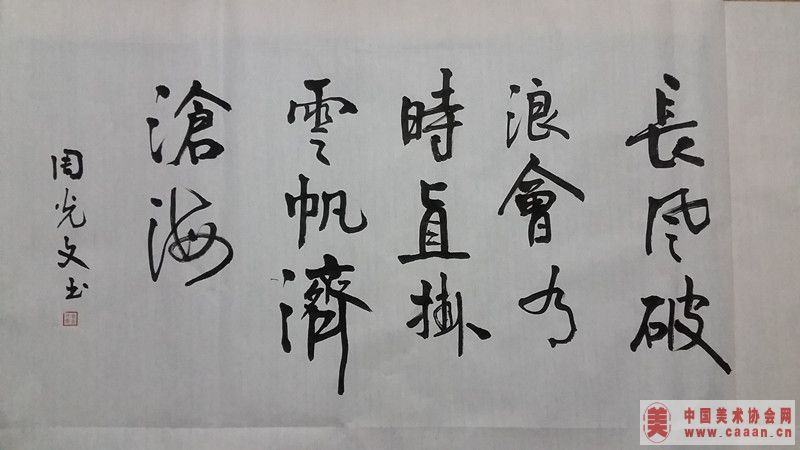 長風破
浪會有
時直掛
雲帆濟
滄海
周光文书
中国美术协会网
www.caaan.cn